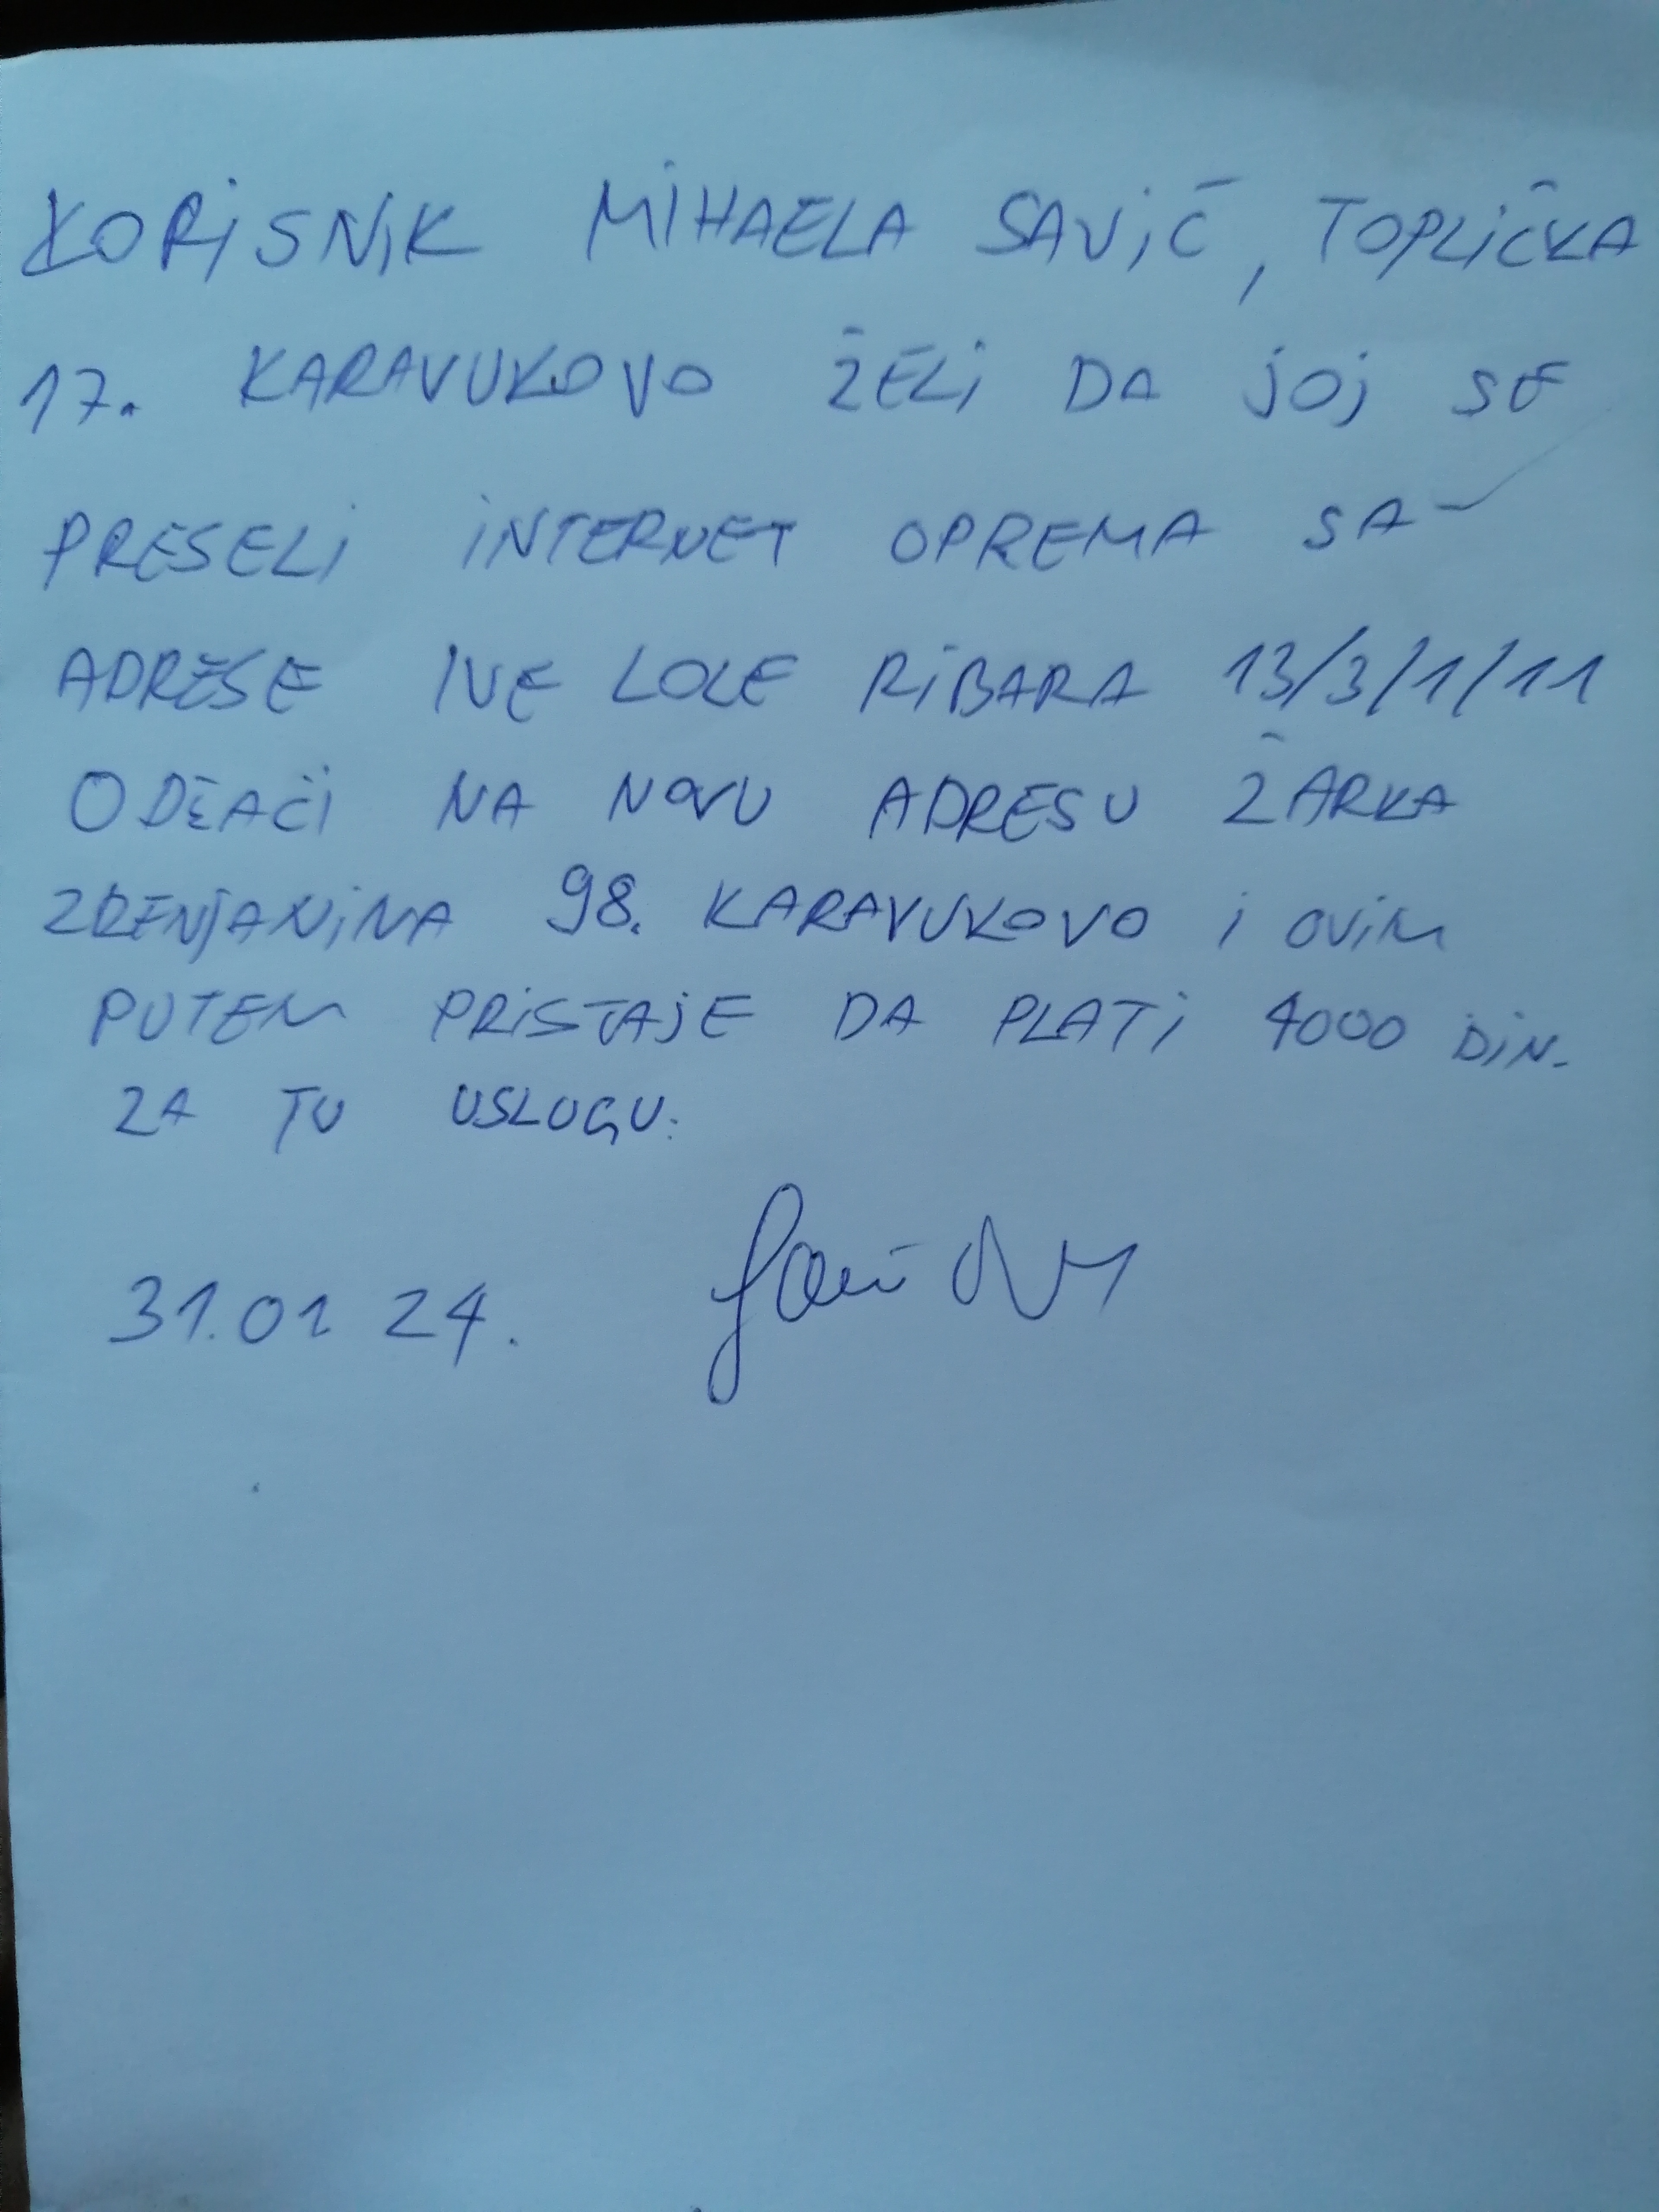 KORISNIK MIHAELA SAVIĆ, TOPLIČKA
17. KARAVUKOVO ŽELI DA JOJ SE
PRESELI INTERNET OPREMA SA
ADRESE IVE LOLE RIBARA 13/3/1/11
ODŽACI NA NOVU ADRESU ŽARKA
ZRENJANINA 98. KARAVUKOVO I OVIM
PUTEM PRISTAJE DA PLATI 4000 DIN.
ZA TU USLUGU.
31.01 24.